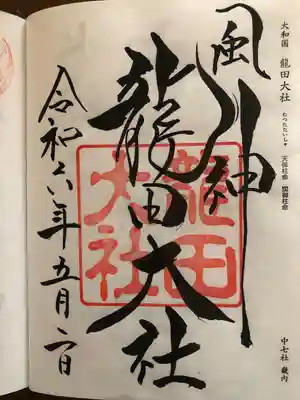 大和国 龍田大社 たつたたいしゃ 天御柱命 國御柱命
中七社 畿内
風神
龍田大社
龍田
大社
令和六年五月二日